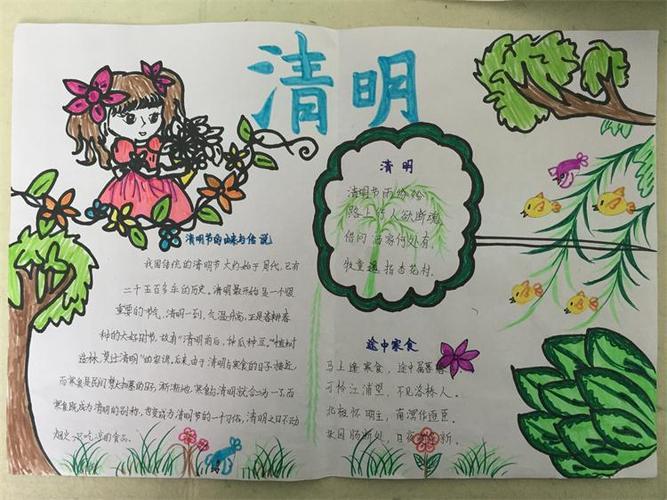 清明
清明节的由来与传说
我国传统的清明节大约始于周代,已有
二十五百多年的历史。清明最开始是一个很
重要的节气,清明一到,气温升高,正是春耕春
种的大好时节,故有“清明前后,种瓜种豆。”“植树
造林,莫过清明”的农谚。后来,由于清明与寒食的日子接近,
而寒食是民间禁火扫墓的日子,渐渐地,寒食与清明就合二为一了,而
寒食既成为清明的别称,也变成为清明节的一个习俗,清明之日不动
烟火,只吃凉的食品。
清明
清明节雨纷纷
路上行人欲断魂
借问酒家何处有
牧童遥指杏花村。
途中寒食
马上逢寒食,途中属暮春
可怜江浦望,不见洛桥人。
北极怀明主,南溟作逐臣。
故园肠断处,日夜柳条新。